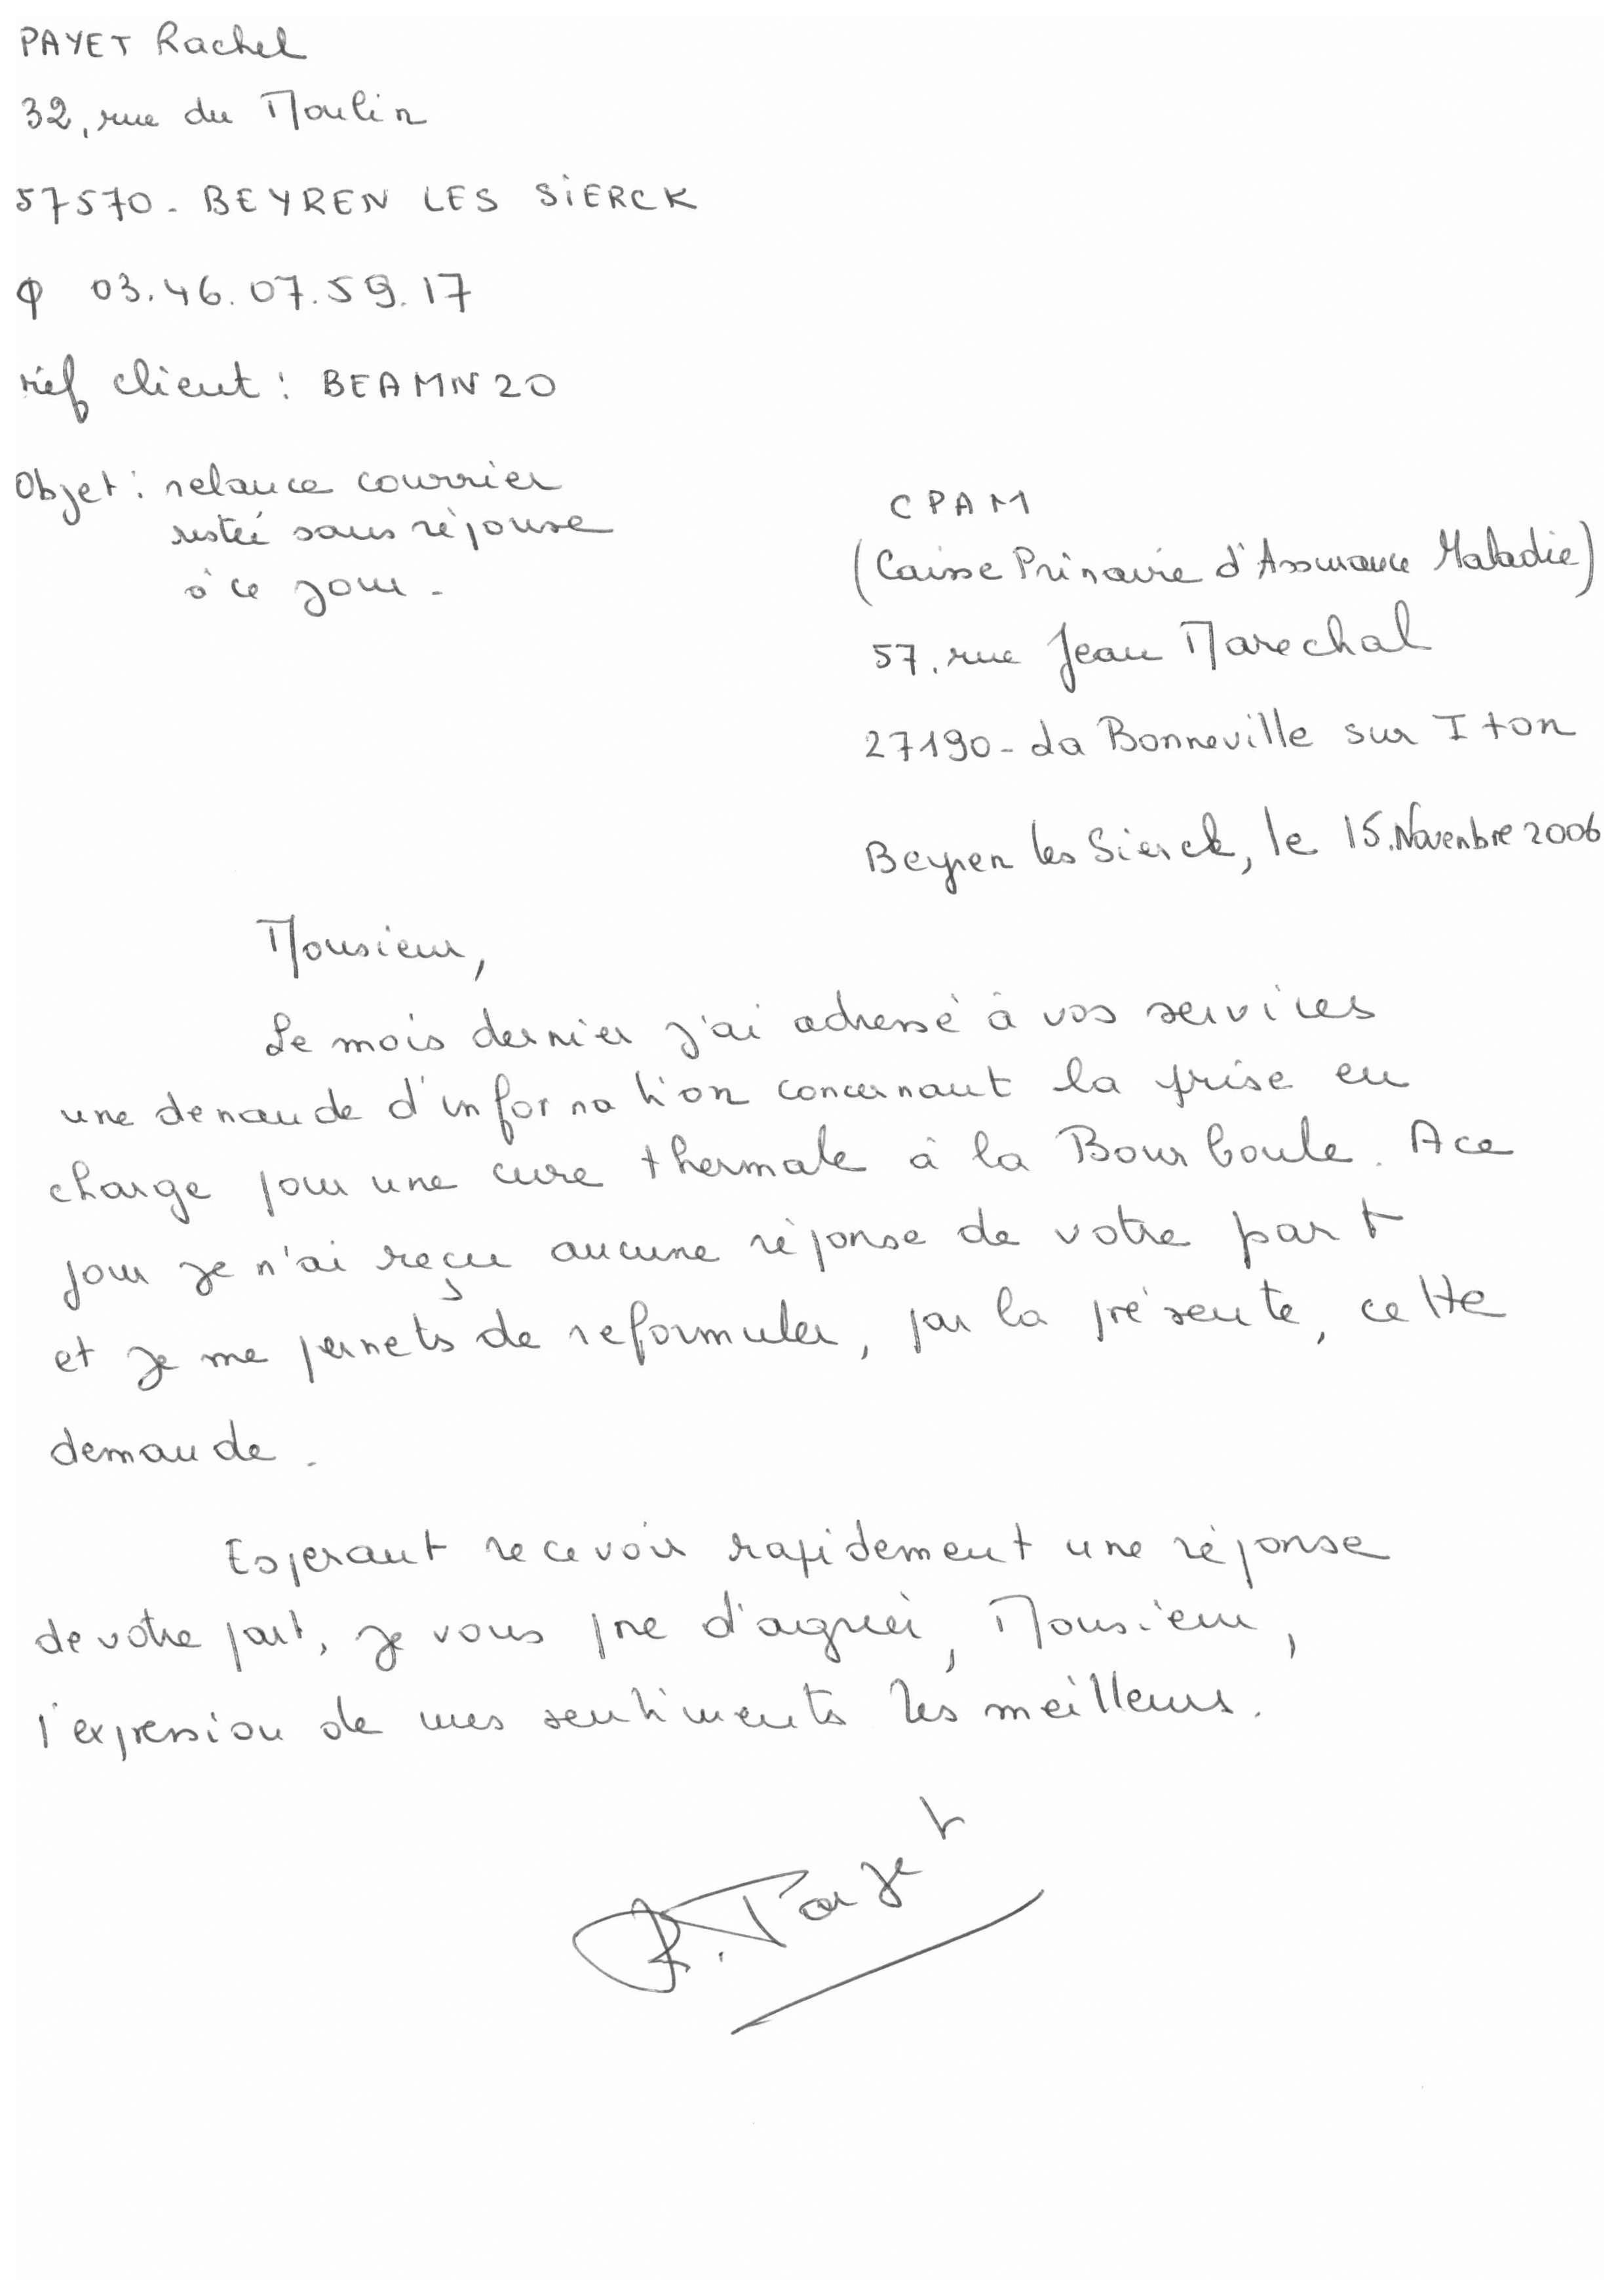 PAYET Rachel
32, rue du Moulin
57570 - BEYREN LES SIERCK
φ 03.46.07.59.17
réf client : BEAMN20
Objet : relance courrier
restée sans réponse
à ce jour -
CPAM
(Caisse Primaire d'Assurance Maladie)
57, rue Jean Marechal
27190 - La Bonneville sur Iton
Beyren les Sierck, le 15 Novembre 2006
Monsieur,
Le mois dernier j'ai adressé à vos services
une demande d'information concernant la prise en
charge pour une cure thermale à la Bourboule. A ce
jour je n'ai reçu aucune réponse de votre part
et je me permets de reformuler, par la présente, cette
demande.
Esperant recevoir rapidement une réponse
de votre part, je vous prie d'agréer, Monsieur,
l'expression de mes sentiments les meilleurs.
R. Payet